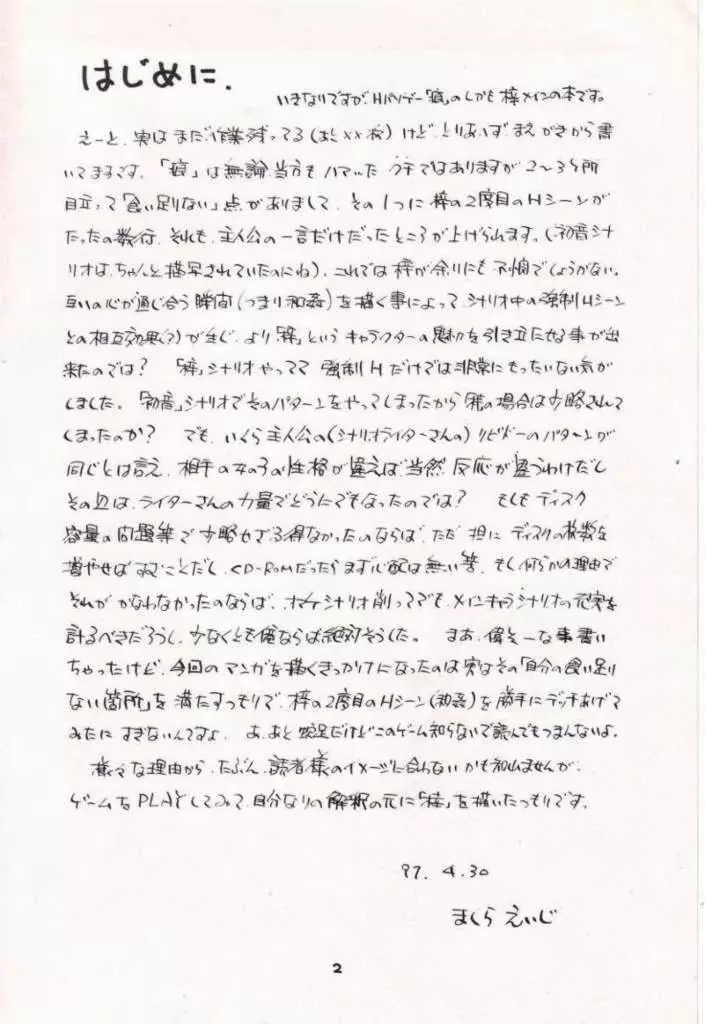 はじめに.
いきなりですが、Hパソゲー「痕」のしかも梓メインの本です。
えーと、実はまだ作業残ってる(あと××枚)けど、とりあえずまえがきから書
いてまるです。「痕」は無論当方もハマッたクチではありますが2〜3ヶ所
目立って「食い足りない」点がありまして、その1つに梓の2度目のHシーンが
たったの数行、それも、主人公の一言だけだったところが上げられます。(初音シナ
リオは、ちゃんと描写されていたのにね)、これでは梓が余りにも不憫でしょうがない。
互いの心が通じ合う瞬間(つまり和姦)を描く事によって、シナリオ中の強制Hシーン
との相互効果(?)が生じ、より「梓」というキャラクターの魅力を引き立たせる事が出
来たのでは? 「梓」シナリオやってて 強制Hだけでは非常にもったいない気が
しました。「初音」シナリオでそのパターンをやってしまったから梓の場合は少略されて
しまったのか? でも、いくら主人公の(シナリオライターさんの)リビドーのパターンが
同じとは言え、相手の女の子の性格が違えば当然、反応が違うわけだし
その辺は、ライターさんの力量でどうにでもなったのでは? もしもディスク
容量の問題等で少略せざる得なかったのならば、ただ 担に ディスクの枚数を
増やせばすむことだし、CD-ROMだったらまず心配は無い筈、もし何らかの理由で
それが かなわなかったのならば、オマケシナリオ削ってでも、メインキャラシナリオの充実を
計るべきだろうし、少なくとも俺ならば絶対そうした。 まあ、偉そーな事書い
ちゃったけど、今回のマンガを描くきっかけになったのは実はその「自分の食い足り
ない箇所」を満たすつもりで、梓の2度目のHシーン(和姦)を勝手にデッチあげて
みたにすぎないんですよ、あ、あと蛇足だけどこのゲーム知らないで読んでもつまんないよ。
様々な理由から、たぶん、読者様のイメージに合わないかも知れませんが、
ゲームをPLAYしてみて、自分なりの解釈の元に「梓」を描いたつもりです。
97. 4.30
まくら えいじ
2